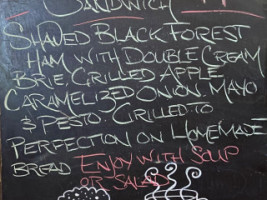 SANDWICH
SHAVED BLACK FOREST
HAM WITH DOUBLE CREAM
BRIE, GRILLED APPLE
CARAMELIZED ONION, MAYO
& PESTO. GRILLED TO
PERFECTION ON HOMEMADE
BREAD ENJOY WITH SOUP
OR SALAD